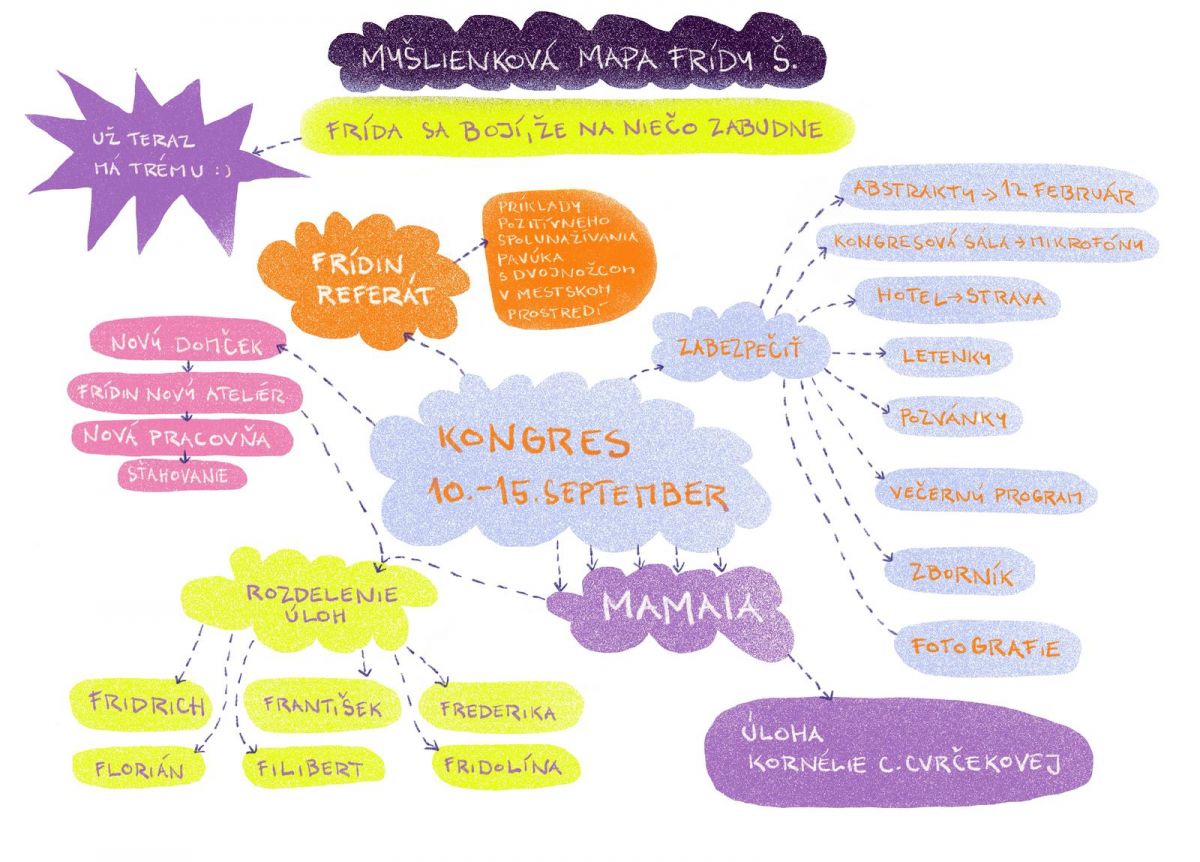 MYŠLIENKOVÁ MAPA FRÍDY Š.
FRÍDA SA BOJÍ, ŽE NA NIEČO ZABUDNE
UŽ TERAZ
MÁ TRÉMU :)
FRÍDIN
REFERÁT
PRÍKLADY
POZITÍVNEHO
SPOLUNAŽÍVANIA
PAVÚKA
S DVOJNOŽCOM
V MESTSKOM
PROSTREDÍ
ABSTRAKTY → 12 FEBRUÁR
KONGRESOVÁ SÁLA → MIKROFÓNY
HOTEL → STRAVA
ZABEZPEČIŤ
LETENKY
POZVÁNKY
VEČERNÝ PROGRAM
ZBORNÍK
FOTOGRAFIE
NOVÝ DOMČEK
FRÍDIN NOVÝ ATELIÉR
NOVÁ PRACOVŇA
SŤAHOVANIE
KONGRES
10.-15. SEPTEMBER
ROZDELENIE
ÚLOH
MAMAIA
FRIDRICH
FRANTIŠEK
FREDERIKA
FLORIÁN
FILIBERT
FRIDOLÍNA
ÚLOHA
KORNÉLIE C. CVRČEKOVEJ